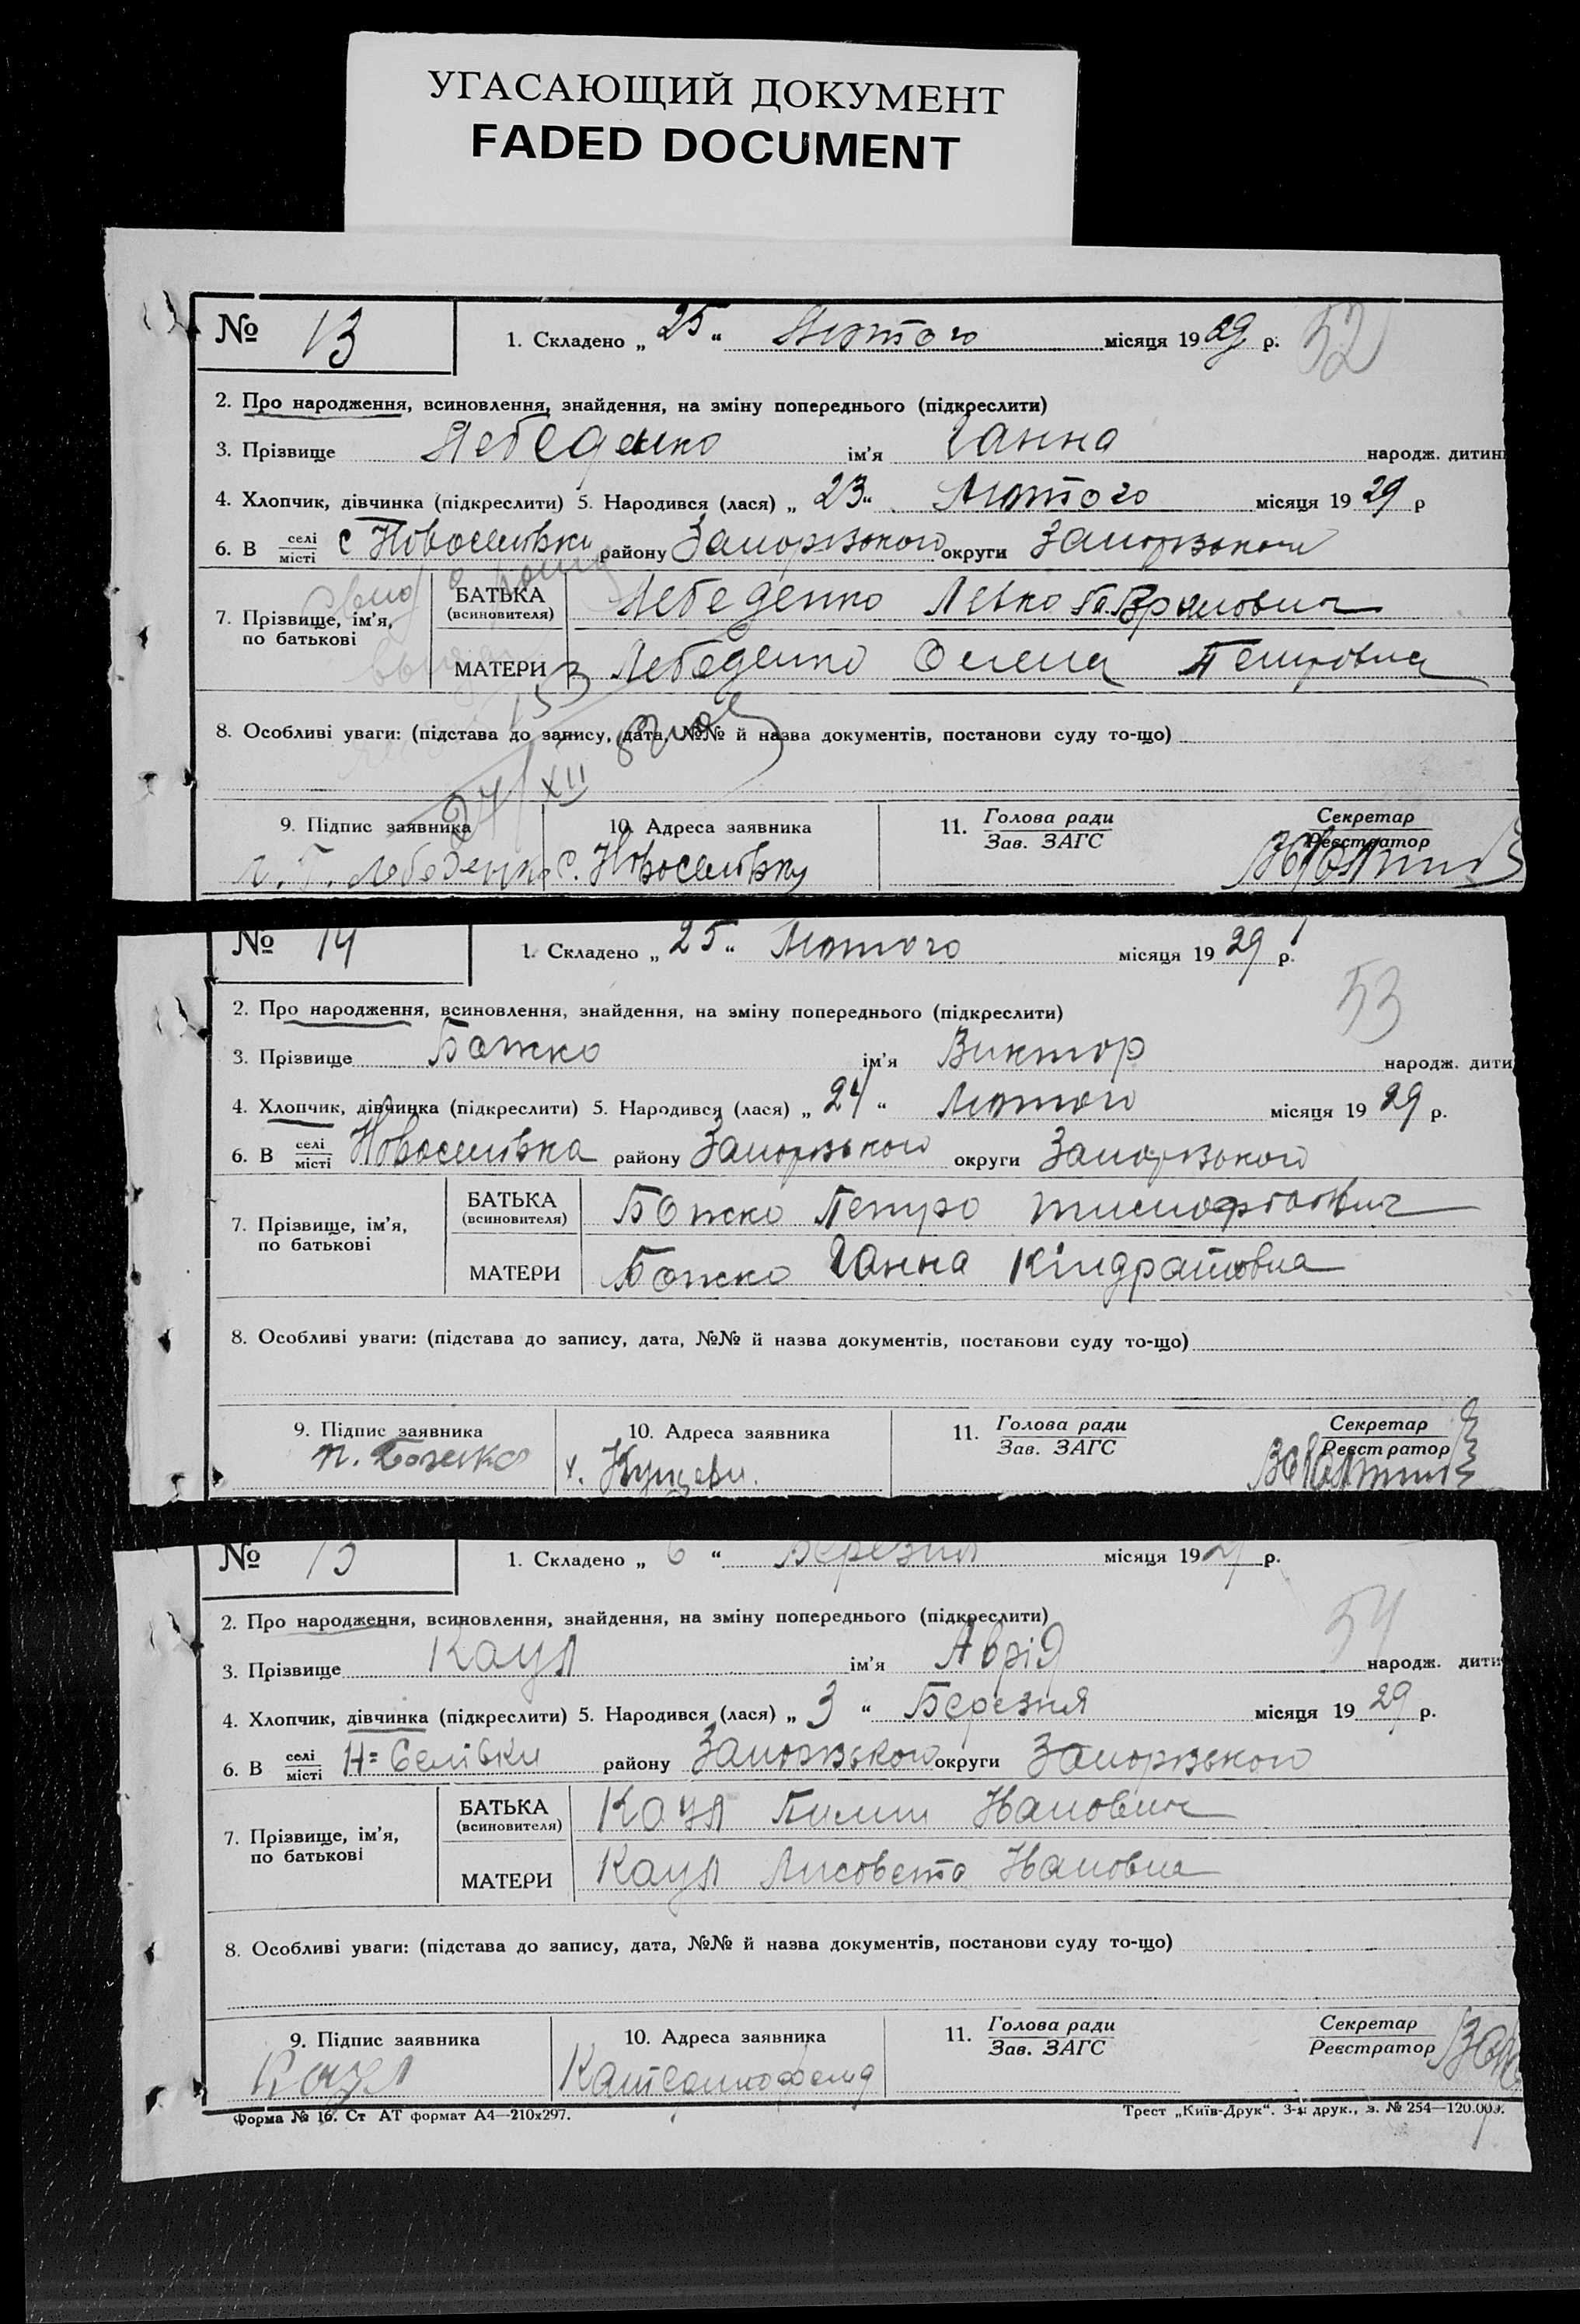 УГАСАЮЩИЙ ДОКУМЕНТ
FADED DOCUMENT
№ 13 1. Складено „ 25 “ Лютого місяця 1929 р. 52
2. Про народження, всиновлення, знайдення, на зміну попереднього (підкреслити)
3. Прізвище Лебеденко ім'я Ганна народж. дитин
4. Хлопчик, дівчинка (підкреслити) 5. Народився (лася) „ 23 “ Лютого місяця 1929 р
6. В селі/місті с Новоселівки району Запорізького округи Запорізького
7. Прізвище, ім'я, по батькові
БАТЬКА (всиновителя) Лебеденко Левко Гаврилович
МАТЕРИ Лебеденко Олена Петровна
8. Особливі уваги: (підстава до запису, дата, №№ й назва документів, постанови суду то-що)
24/XII
9. Підпис заявника 10. Адреса заявника 11. Голова ради/Зав. ЗАГС Секретар/Реєстратор
Л. Г. Лебеденко с. Новоселівку
№ 14 1. Складено „ 25 “ Лютого місяця 1929 р.
53
2. Про народження, всиновлення, знайдення, на зміну попереднього (підкреслити)
3. Прізвище Божко ім'я Виктор народж. дити
4. Хлопчик, дівчинка (підкреслити) 5. Народився (лася) „ 24 “ Лютого місяця 1929 р.
6. В селі/місті Новоселівка району Запорізького округи Запорізького
7. Прізвище, ім'я, по батькові
БАТЬКА (всиновителя) Божко Петро
МАТЕРИ Божко Ганна Кіндратовна
8. Особливі уваги: (підстава до запису, дата, №№ й назва документів, постанови суду то-що)
9. Підпис заявника 10. Адреса заявника 11. Голова ради/Зав. ЗАГС Секретар/Реєстратор
П. Божко х. Кущеви.
№ 15 1. Складено „ 6 “ Березня місяця 1929 р.
2. Про народження, всиновлення, знайдення, на зміну попереднього (підкреслити)
54
3. Прізвище Каул ім'я Аврід народж. дити
4. Хлопчик, дівчинка (підкреслити) 5. Народився (лася) „ 3 “ Березня місяця 1929 р.
6. В селі/місті Н=Селівки району Запорізького округи Запорізького
7. Прізвище, ім'я, по батькові
БАТЬКА (всиновителя) Каул Иванович
МАТЕРИ Каул Лисовета Ивановна
8. Особливі уваги: (підстава до запису, дата, №№ й назва документів, постанови суду то-що)
9. Підпис заявника 10. Адреса заявника 11. Голова ради/Зав. ЗАГС Секретар/Реєстратор
Каул
Форма № 16. Ст АТ формат А4—210x297. Трест „Київ-Друк“. 3-я друк., з. № 254—120.000.